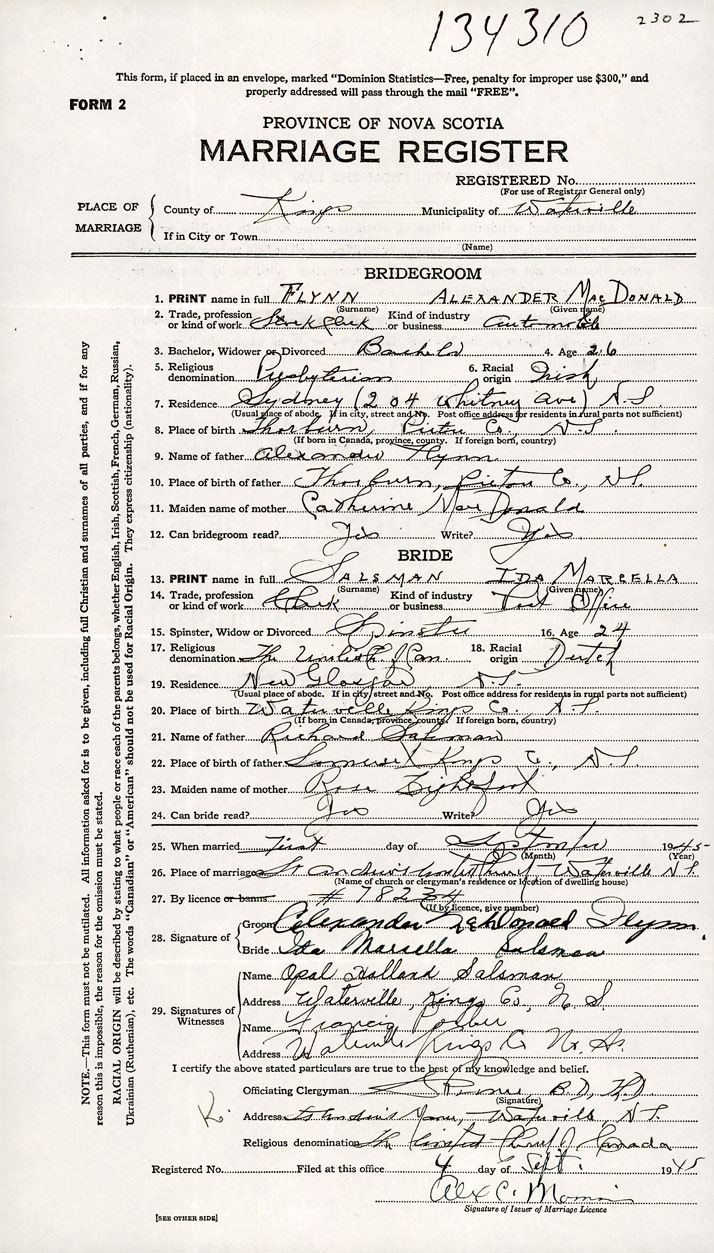 134310 2302
This form, if placed in an envelope, marked "Dominion Statistics—Free, penalty for improper use $300," and
properly addressed will pass through the mail "FREE".
FORM 2
PROVINCE OF NOVA SCOTIA
MARRIAGE REGISTER
REGISTERED No.
(For use of Registrar General only)
PLACE OF MARRIAGE
County of Kings Municipality of Waterville
If in City or Town
(Name)
BRIDEGROOM
1. PRINT name in full FLYNN ALEXANDER MacDONALD
(Surname) (Given name)
2. Trade, profession or kind of work Stock Clerk Kind of industry or business Automobile
3. Bachelor, Widower or Divorced Bachelor 4. Age 26
5. Religious denomination Presbyterian 6. Racial origin Irish
7. Residence Sydney (204 Whitney Ave) N.S.
(Usual place of abode. If in city, street and No. Post office address for residents in rural parts not sufficient)
8. Place of birth Thorburn, Pictou Co., N.S.
(If born in Canada, province, county. If foreign born, country)
9. Name of father Alexander Flynn
10. Place of birth of father Thorburn, Pictou Co., N.S.
11. Maiden name of mother Catherine MacDonald
12. Can bridegroom read? Yes Write? Yes
BRIDE
13. PRINT name in full SALSMAN IDA MARCELLA
(Surname) (Given name)
14. Trade, profession or kind of work Clerk Kind of industry or business Post Office
15. Spinster, Widow or Divorced Spinster 16. Age 24
17. Religious denomination The United Ch. of Can. 18. Racial origin Dutch
19. Residence New Glasgow N.S.
(Usual place of abode. If in city, street and No. Post office address for residents in rural parts not sufficient)
20. Place of birth Waterville Kings Co. N.S.
(If born in Canada, province, county. If foreign born, country)
21. Name of father Richard Salsman
22. Place of birth of father Somerset Kings Co., N.S.
23. Maiden name of mother Rose Lightfoot
24. Can bride read? Yes Write? Yes
25. When married First day of September 1945
(Month) (Year)
26. Place of marriage St Andrew's United Church Waterville N.S.
(Name of church or clergyman's residence or location of dwelling house)
27. By licence or banns # 78234
(If by licence, give number)
28. Signature of
Groom Alexander MacDonald Flynn.
Bride Ida Marcella Salsman
29. Signatures of Witnesses
Name Opal Holland Salsman
Address Waterville, Kings Co., N.S.
Name Francis
Address Waterville Kings Co N.S.
I certify the above stated particulars are true to the best of my knowledge and belief.
Officiating Clergyman B.D.,
(Signature)
K. Address St Andrew's Manse, Waterville, N.S.
Religious denomination The United Church of Canada
Registered No. Filed at this office 4 day of Sept. 1945
Alex C.
Signature of Issuer of Marriage Licence
[SEE OTHER SIDE]
NOTE.—This form must not be mutilated. All information asked for is to be given, including full Christian and surnames of all parties, and if for any
reason this is impossible, the reason for the omission must be stated.
RACIAL ORIGIN will be described by stating to what people or race each of the parents belongs, whether English, Irish, Scottish, French, German, Russian,
Ukrainian (Ruthenian), etc. The words "Canadian" or "American" should not be used for Racial Origin. They express citizenship (nationality).